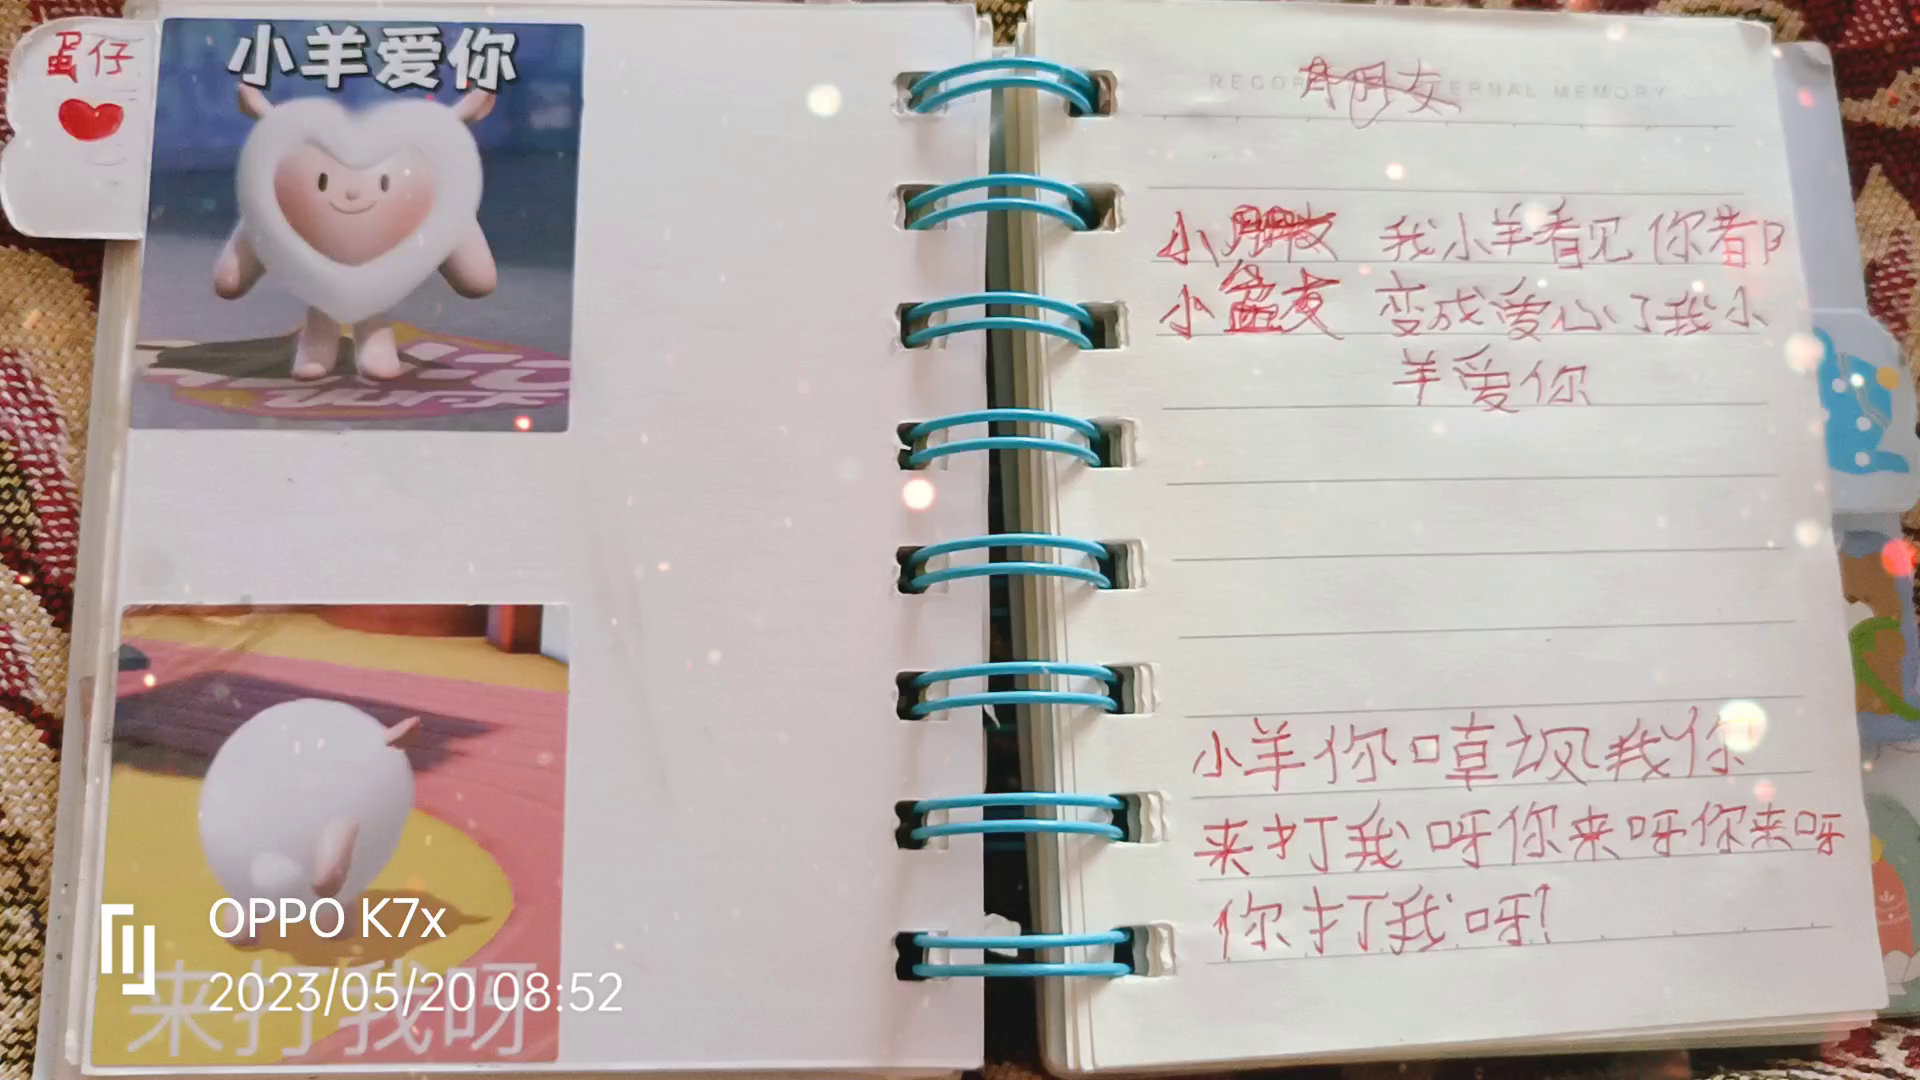 蛋仔
小羊爱你
OPPO K7x
2023/05/20 08:52
来打我呀
小 我小羊看见你都
小 变成爱心了我小
羊爱你
小羊你嘲讽我你
来打我呀你来呀你来呀
你打我呀!